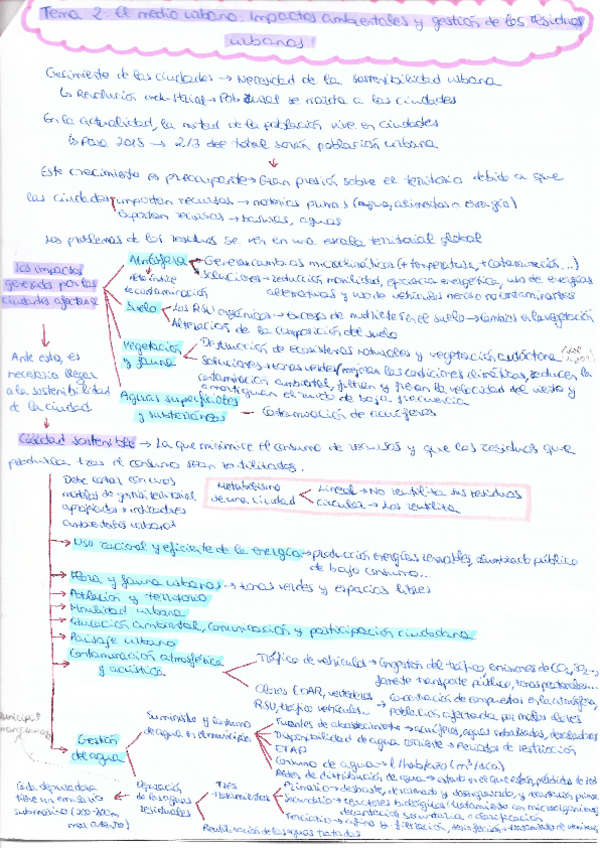 Tema 2: El medio urbano: Impactos ambientales y gestión de los residuos
urbanos
Crecimiento de las ciudades → Necesidad de la sostenibilidad urbana
↳ Revolución industrial → Pob rural se marcha a las ciudades
En la actualidad, la mitad de la población vive en ciudades
↳ Para 2015 → 2/3 del total serán población urbana
Este crecimiento es preocupante → Gran presión sobre el territorio debido a que
las ciudades importan recursos → materias primas (agua, alimentos o energía)
exportan recursos → basuras, aguas
Los problemas de los residuos se ven en una escala territorial global
Los impactos
generados por las
ciudades afectan a
Atmósfera → Generar cambios microclimáticos (+ temperatura, + contaminación,...)
Soluciones → reducción movilidad, eficacia energética, uso de energías
alternativas y uso de vehículos menos contaminantes
de contaminación
Suelo → Los RSU orgánicos → exceso de nutrientes en el suelo → cambios en la vegetación
Alteración de la composición del suelo
Vegetación
y fauna
Destrucción de ecosistemas naturales y vegetación autóctona
Soluciones: zonas verdes (mejoran las condiciones climáticas, reducen la
contaminación ambiental, filtran y frenan la velocidad del viento y
amortiguan el ruido de baja frecuencia
Aguas superficiales
y subterráneas
Contaminación de acuíferos
Ante esto, es
necesario llegar
a la sostenibilidad
de la ciudad
Ciudad sostenible → La que minimice el consumo de recursos y que los residuos que
produzca tras el consumo sean reutilizados.
Debe contar con unos
modelos de gestión territorial
apropiados + indicadores
ambientales urbanos
Metabolismo
de una ciudad
Lineal → No reutiliza sus residuos
Circular → Los reutiliza
→ Uso racional y eficiente de la energía → producción energías renovables, alumbrado público
de bajo consumo...
→ Flora y fauna urbanas → zonas verdes y espacios libres
→ Población y territorio
→ Movilidad urbana
→ Educación ambiental, comunicación y participación ciudadana
→ Paisaje urbano
→ Contaminación atmosférica
y acústica
Tráfico de vehículos → Congestión del tráfico, emisiones de CO2,
fomento transporte público, zonas peatonales...
Olores (EDAR, vertederos
RSU, tráfico vehículos... → Concentración de compuestos en la atmósfera,
población afectada por malos olores
Gestión
del agua
Suministro y consumo
de agua en el municipio
Fuentes de abastecimiento → acuíferos, aguas embalsadas, desaladoras
Disponibilidad de agua corriente → Periodos de restricción
ETAP
Consumo de agua → l/hab/año (m³/seca)
Redes de distribución de agua → estado en el que están, pérdidas de las
Cada depuradora
tiene un emisario
submarino
Depuración
de las aguas
residuales
Tres
tratamientos
Primario → desbaste, desarenado y desengrasado, y
Secundario → reactores biológicos (tratamiento con microorganismos,
decantación secundaria o clarificación
Terciario →
Reutilización de las aguas tratadas